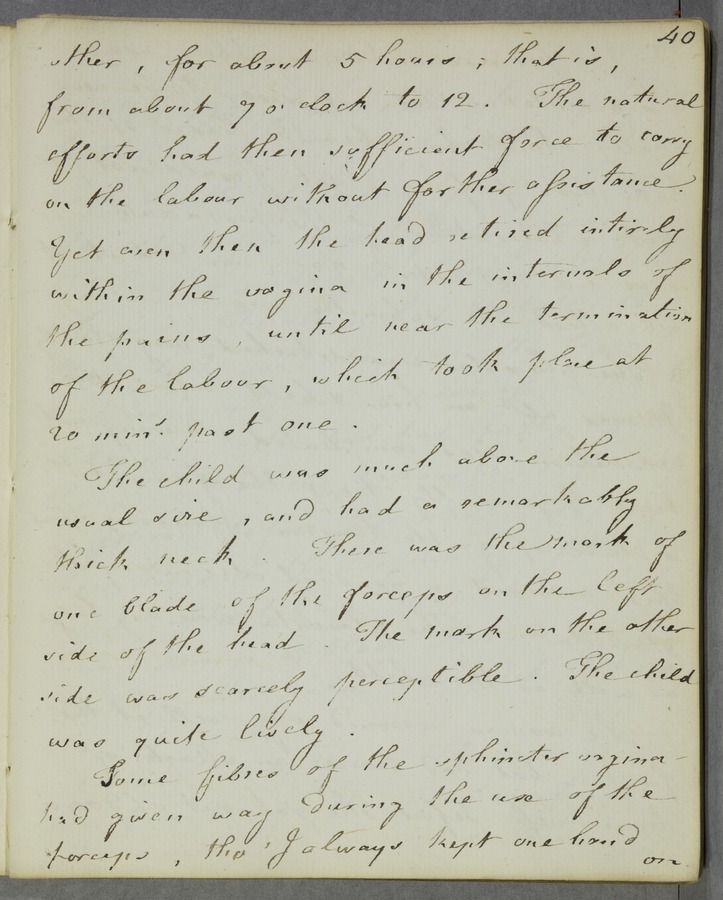 40
other, for about 5 hours; that is,
from about 7 o clock to 12. The natural
efforts had then sufficient force to carry
on the labour without farther assistance.
Yet even then the head retired intirely
within the vagina in the intervals of
the pains, until near the termination
of the labour, which took place at
20 min.s past one.
The child was much above the
usual size, and had a remarkably
thick neck. There was the mark of
one blade of the forceps on the left
side of the head. The mark on the other
side was scarcely perceptible. The child
was quite lively.
Some fibres of the sphincter vagina
had given way during the use of the
forceps, tho' I always kept one hand
on